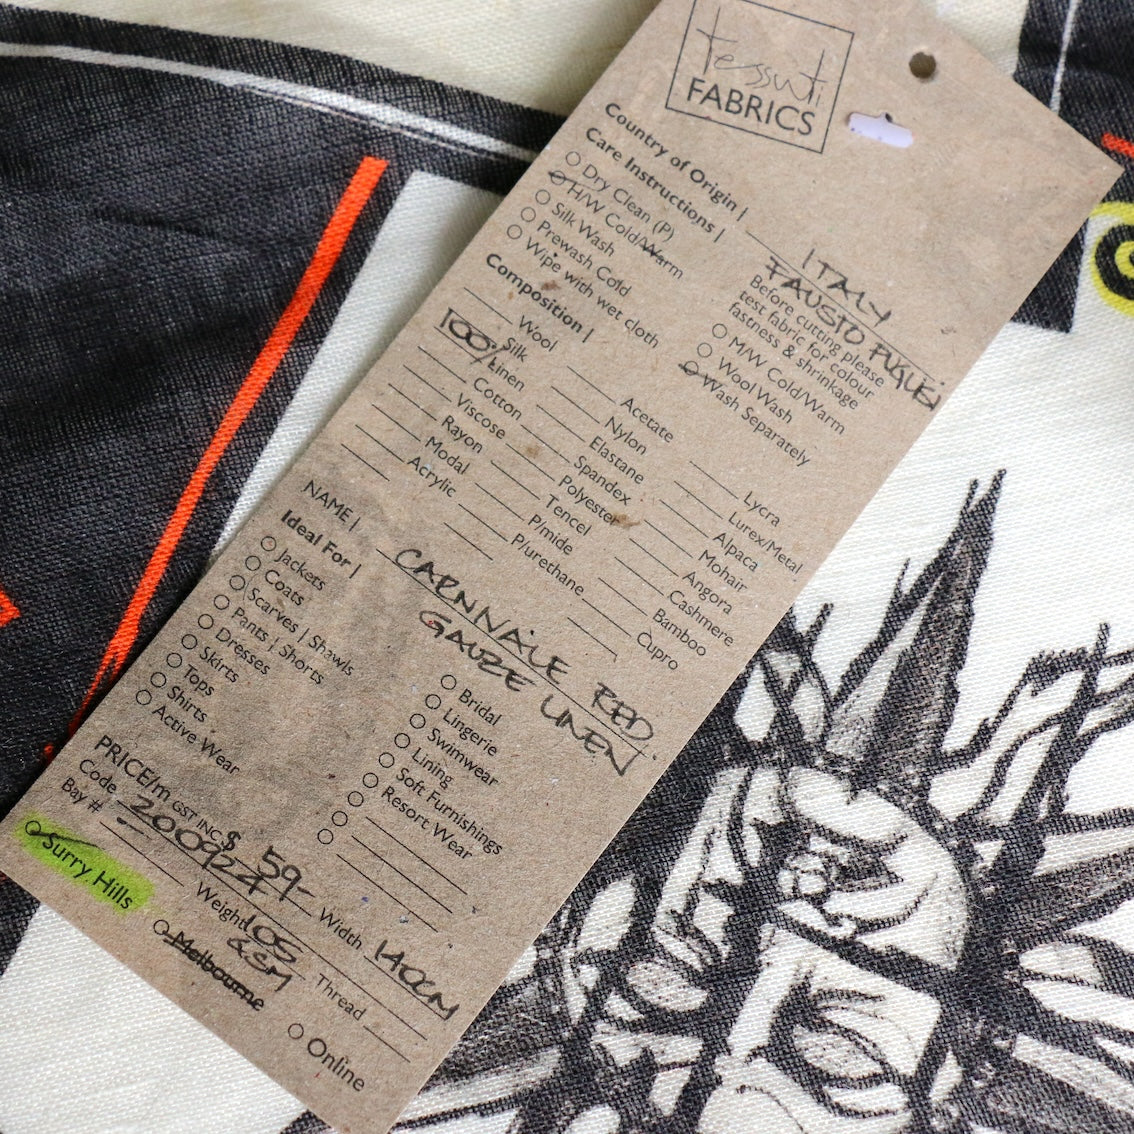 tessuti
FABRICS
Country of Origin | ITALY
FAUSTO PUGLISI
Care Instructions |
Before cutting please
test fabric for colour
fastness & shrinkage
Dry Clean (P)
H/W Cold/Warm
Silk Wash
Prewash Cold
Wipe with wet cloth
M/W Cold/Warm
Wool Wash
Wash Separately
Composition |
Wool
Silk
100% Linen
Cotton
Viscose
Rayon
Modal
Acrylic
Acetate
Nylon
Elastane
Spandex
Polyester
Tencel
P/mide
P/urethane
Lycra
Lurex/Metal
Alpaca
Mohair
Angora
Cashmere
Bamboo
Cupro
NAME | CARNNALE RED
GAUZE LINEN
Ideal For |
Jackets
Coats
Scarves | Shawls
Pants | Shorts
Dresses
Skirts
Tops
Shirts
Active Wear
Bridal
Lingerie
Swimwear
Lining
Soft Furnishings
Resort Wear
PRICE/m GST INC $ 59- Width 140CM
Code 200924 Weight 105 GSM Thread
Bay #
Surry Hills
Melbourne
Online